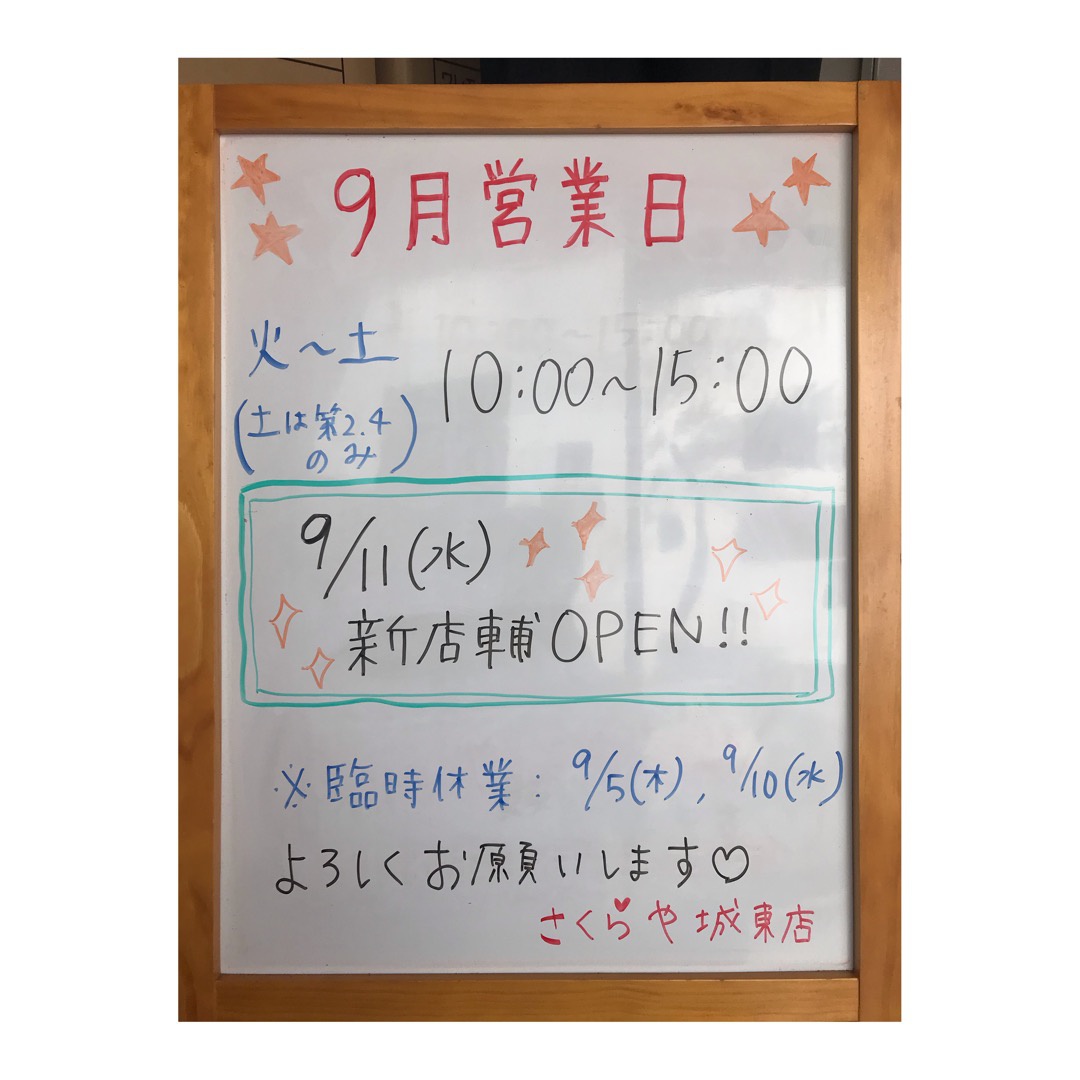 9月営業日
火～土
10:00～15:00
(土は第2.4
のみ)
9/11(水)
新店輔OPEN!!
※臨時休業: 9/5(木), 9/10(水)
よろしくお願いします♡
さくらや城東店